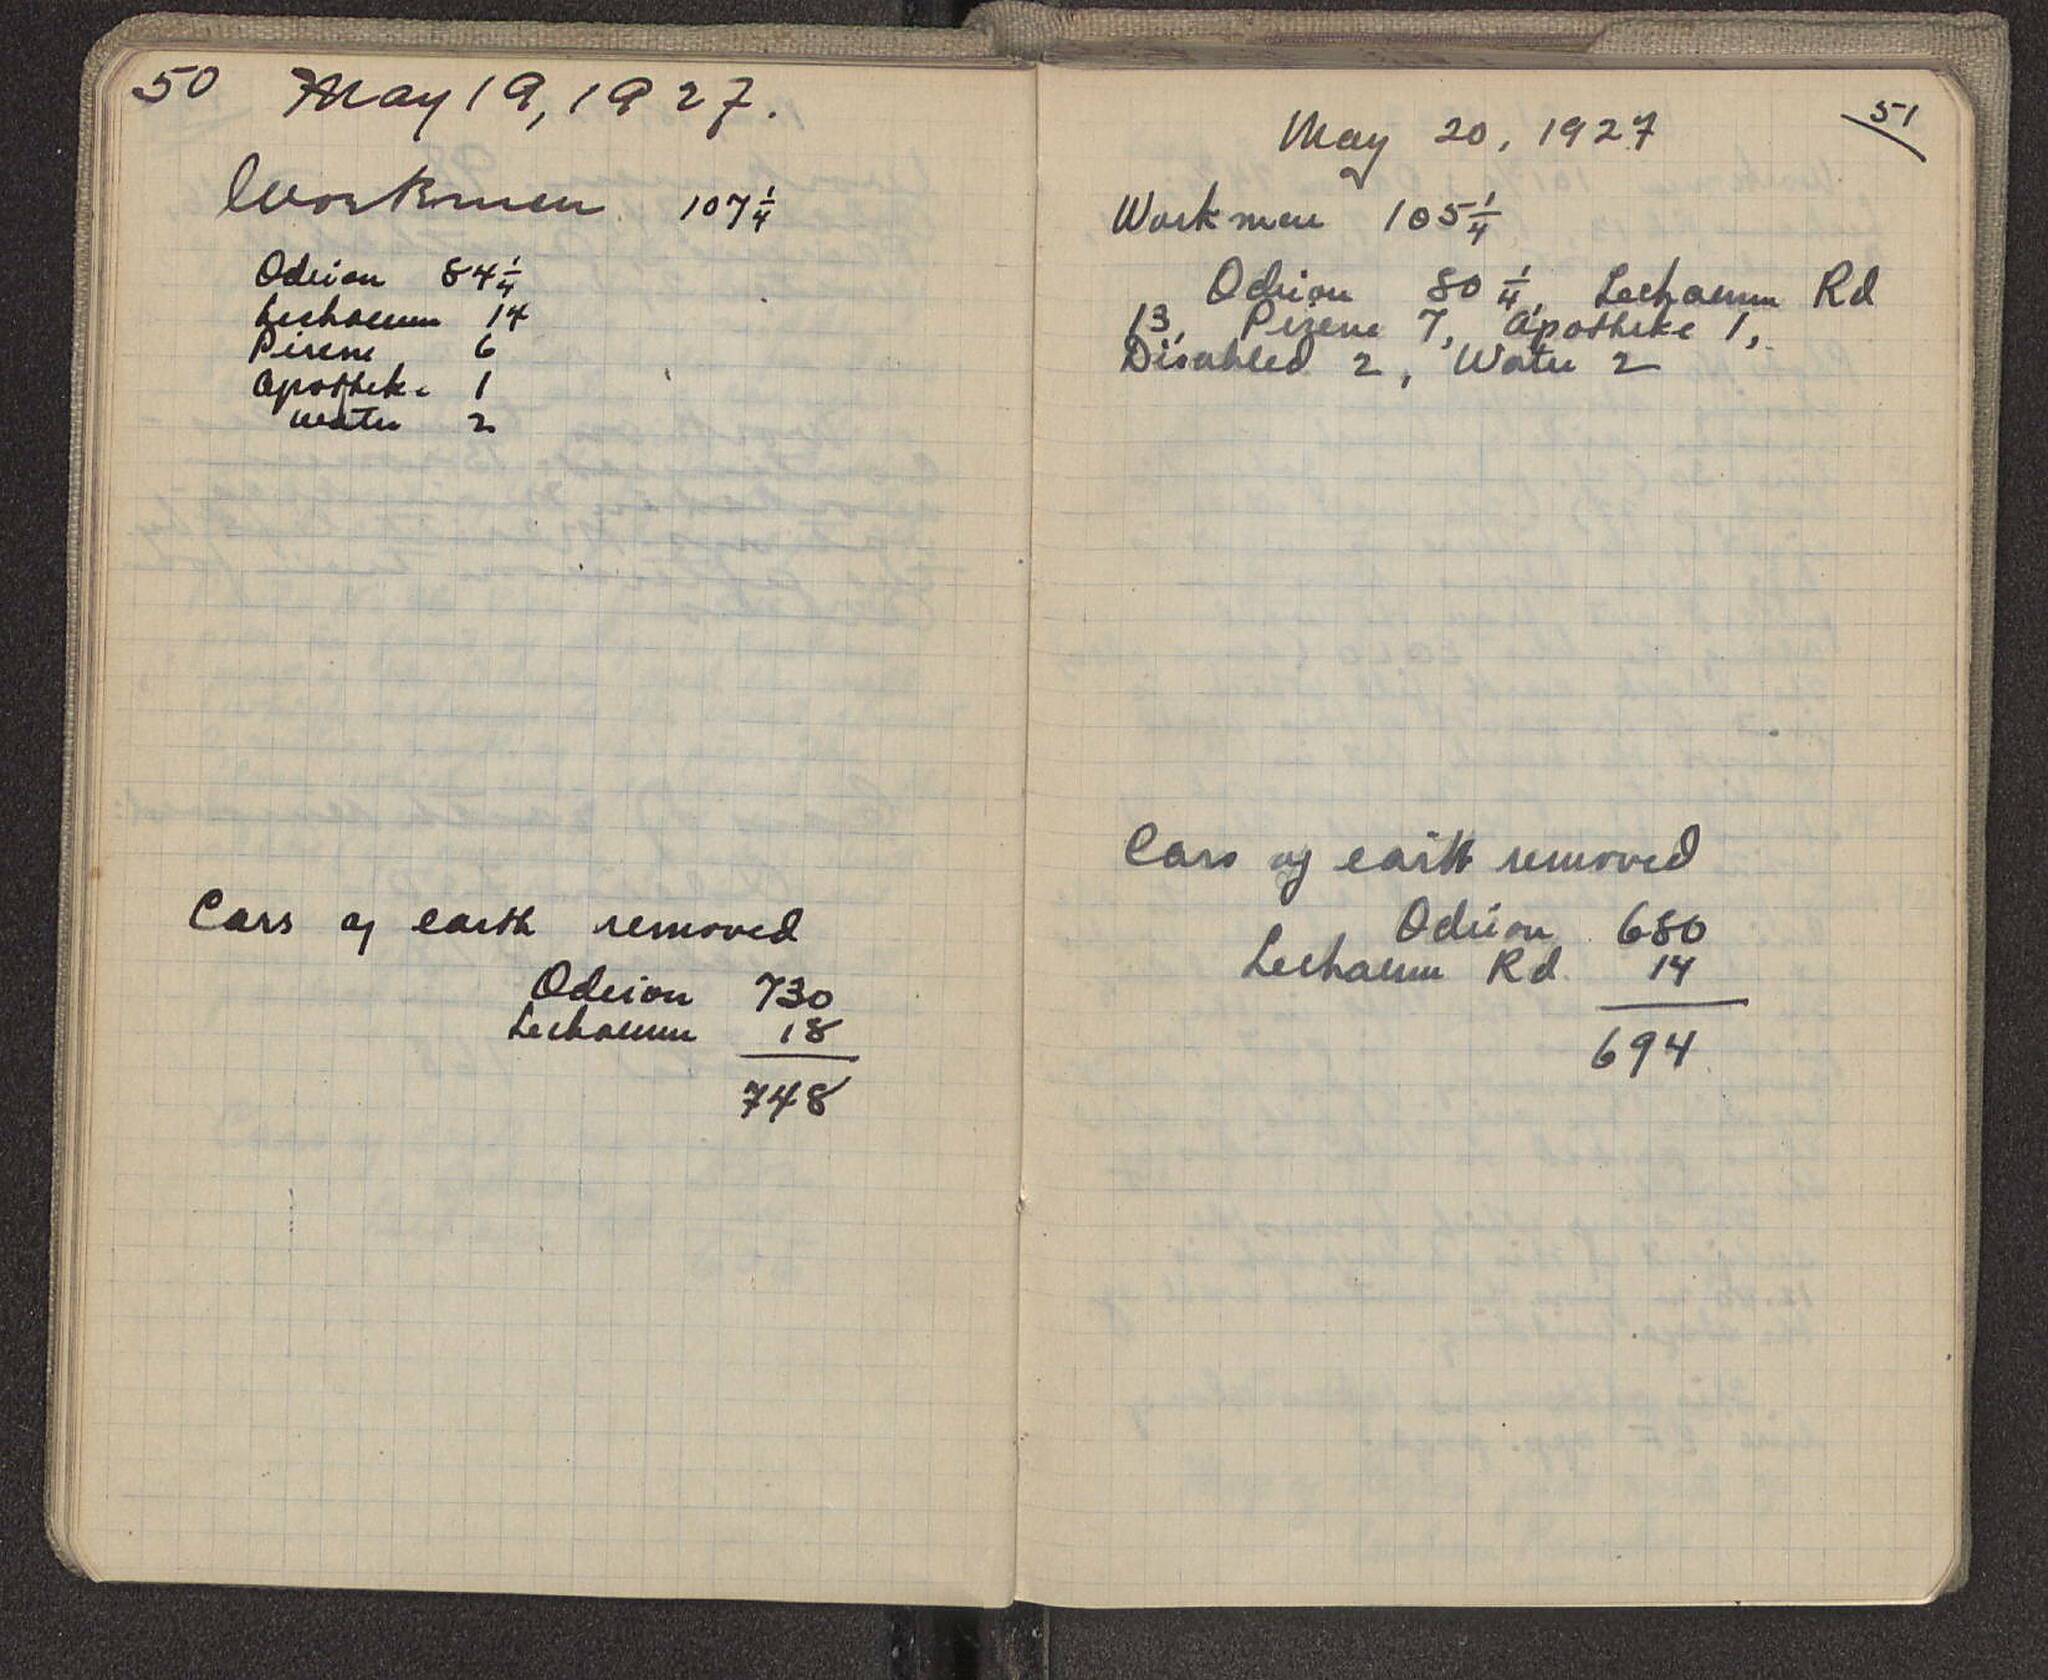 50 May 19, 1927.
Workmen 107 1/4
Odeion 84 1/4
Lechaeum 14
Pirene 6
Apotheke 1
Water 2
Cars of earth removed
Odeion 730
Lechaeum 18
748
51
May 20, 1927
Workmen 105 1/4
Odeion 80 1/4, Lechaeum Rd
13, Pirene 7, Apotheke 1,
Disabled 2, Water 2
Cars of earth removed
Odeion 680
Lechaeum Rd. 14
694